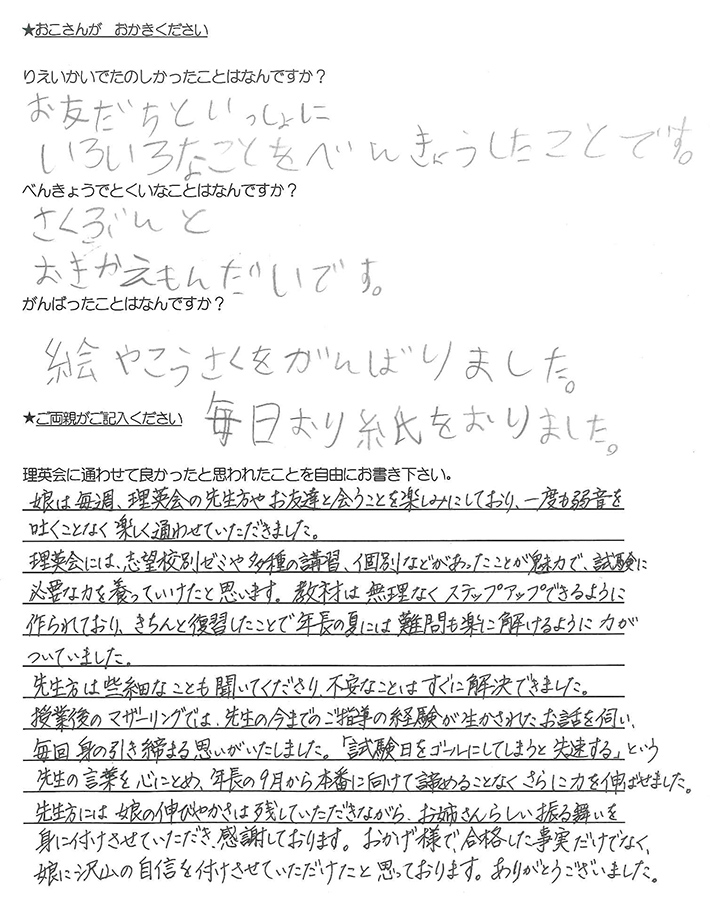 ★おこさんが おかきください
りえいかいでたのしかったことはなんですか？
お友だちといっしょに
いろいろなことをべんきょうしたことです。
べんきょうでとくいなことはなんですか？
さくぶんと
おきかえもんだいです。
がんばったことはなんですか？
絵やこうさくをがんばりました。
★ご両親がご記入ください
毎日おり紙をおりました。
理英会に通わせて良かったと思われたことを自由にお書き下さい。
娘は毎週、理英会の先生方やお友達と会うことを楽しみにしており、一度も弱音を
吐くことなく楽しく通わせていただきました。
理英会には、志望校別ゼミや多種の講習、個別などがあったことが魅力で、試験に
必要な力を養っていけたと思います。教材は無理なくステップアップできるように
作られており、きちんと復習したことで年長の夏には難問も楽に解けるように力が
ついていました。
先生方は些細なことも聞いてくださり、不安なことはすぐに解決できました。
授業後のマザーリングでは、先生の今までのご指導の経験が生かされたお話を伺い、
毎回身の引き締まる思いがいたしました。「試験日をゴールにしてしまうと失速する」という
先生の言葉を心にとめ、年長の9月から本番に向けて諦めることなくさらに力を伸ばせました。
先生方には娘の伸びやかさは残していただきながら、お姉さんらしい振る舞いを
身に付けさせていただき、感謝しております。おかげ様で、合格した事実だけでなく、
娘に沢山の自信を付けさせていただけたと思っております。ありがとうございました。